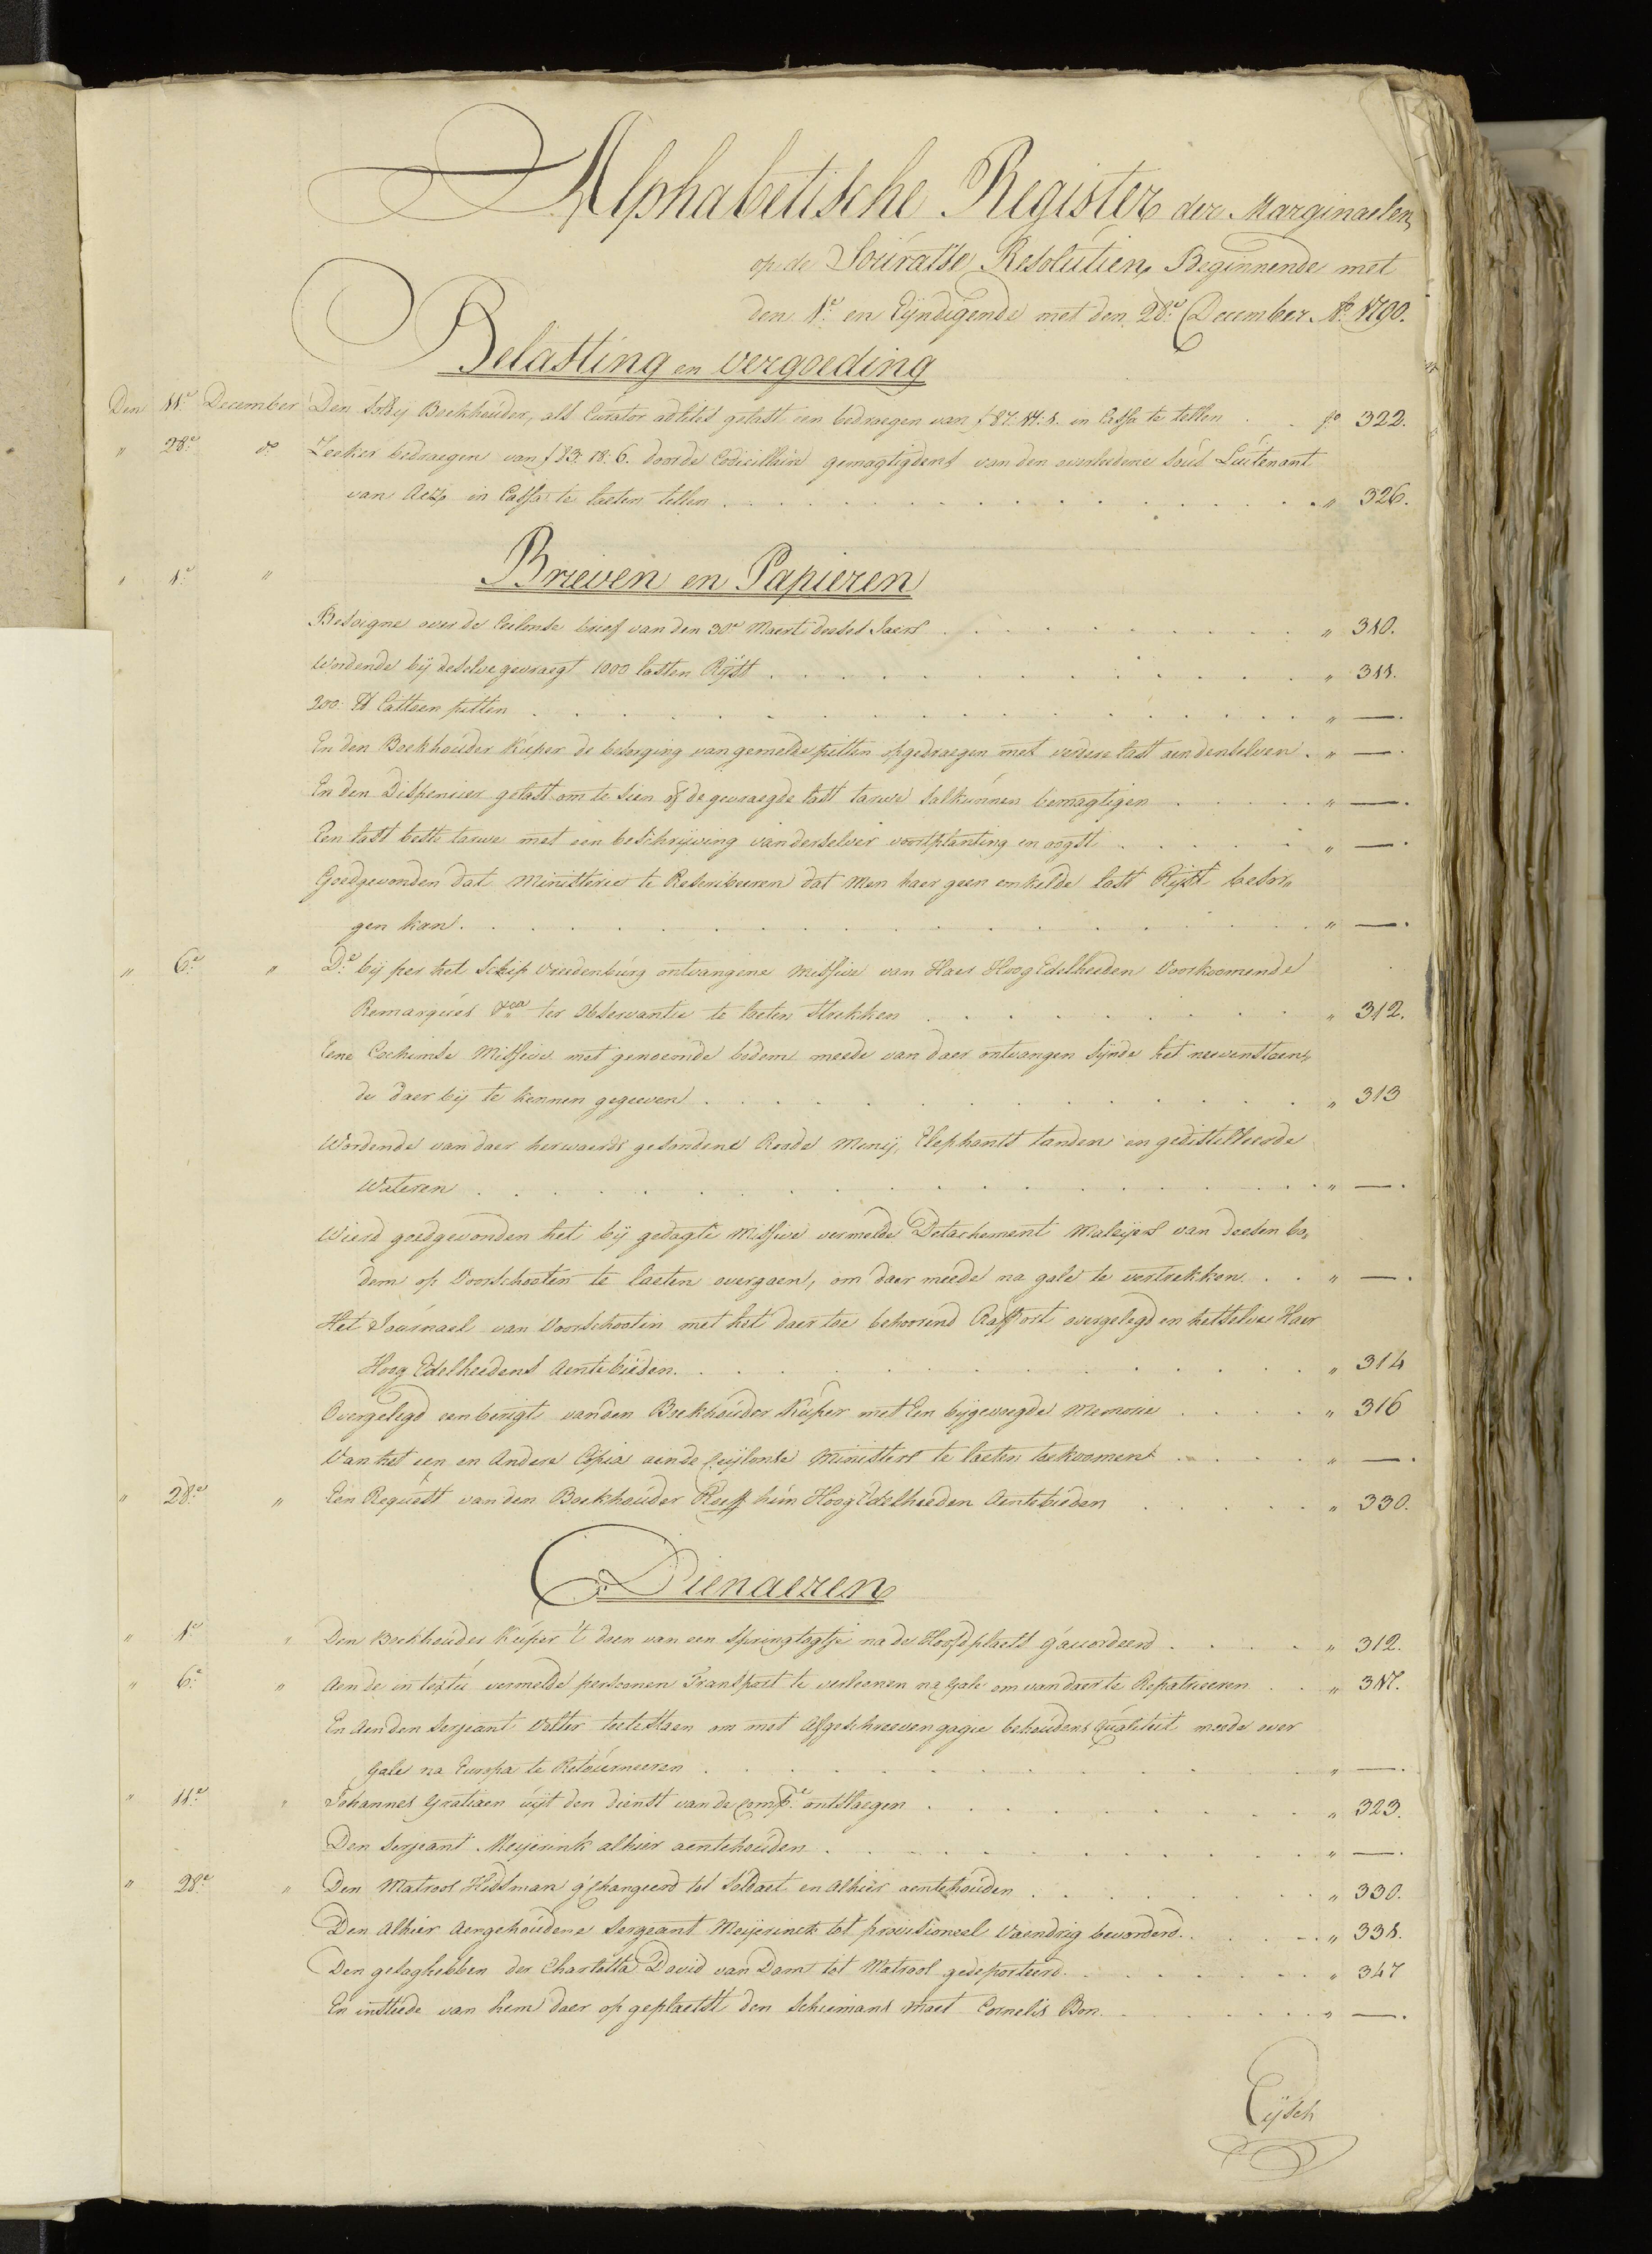 Alphabetische Register der Marginaelen
op de Souratse Resolutien, Beginnende met
den 1e. en Eyndigende met den 28e. December Ao. 1790.
Belasting en vergoeding
Den 11e. December Den Boekhouder, als Curator adlites gelast een bedraegen van f 87: 14: 8. in Cassa te tellen fo 322.
" 28e. do. Zeeker bedraegen van f 83: 18: 6. door de Codicillaire gemagtigdens van den overleedene sous Luitenant
van in Cassa te laeten tellen " 326.
" 1e. " Brieven en Papieren
Besoigne over de Ceilonse brief van den 30e. Maert deeses Jaers " 310.
Wordende bij deselve gevraegt 1000 lasten Rijst " 311.
200. lb Cattoen pitten " —.
En den Boekhouder Kuper de besorging van gemelde pitten opgedraegen met verdere last aen denselven " —.
En den Dispencier gelast om te sien of de gevraegde last tarwe sal kunnen bemagtigen " —.
Een last beste tarwe met een beschrijving van derselver voortplanting en oogst " —.
Goedgevonden dat Ministerie te Rescribeeren dat Men haer geen enkelde last Rijst besor„
gen kan " —.
" 6e. " De. bij per het Schip Vreedenburg ontvangene Missive van Haer Hoog Edelheeden Voorkoomende
Remarques &ca ter Observantie te laeten strekken " 312.
Eene Cochimse Missive met genoemde bodem meede van daer ontvangen sijnde het nevenstaen„
de daer bij te kennen gegeeven " 313
Wordende van daer herwaerds gesondene Roode Menij, Elephants tanden en gedistilleerde
Wateren " —.
Wierd goedgevonden het bij gedagte Missive vermelde Detachement Maleijers van deesen bo„
dem op Voorschooten te laeten overgaen, om daer meede na gale te vertrekken " —.
Het Journael van Voorschooten met het daer toe behoorend Rapport overgelegd en hetselve Haer
Hoog Edelheedens Aentebieden " 314
Overgelegd een berigt van den Boekhouder Kuper met Een bijgevoegde Memorie " 316
Van het een en Andere Copia aen de Ceijlonse Ministers te laeten toekoomen " —.
" 28e. " Een Request van den Boekhouder hun Hoog Edelheeden Aentebieden " 330.
Dienaeren
" 1e. " Den Boekhouder Kuper 't doen van een springtogtje na de Hoofdplaets g'accordeerd " 312.
" 6e. " Aen de in textu vermelde persoonen Transport te verleenen na Gale om van daer te Repatrieeren " 317.
En Aen den Serjeant Velter toetestaen om met Afgeschreeven gagie behoudens Qualiteit meede over
Gale na Europa te Retourneeren " —.
" 11e. " Johannes Gratiaen uijt den dienst van de Compe. ontslaegen " 323.
Den Serjeant Meijerink alhier aentehouden " —.
" 28e. " Den Matroos Hidsman g'changeerd tot Soldaet en Alhier aentehouden " 330.
Den Alhier Aengehoudene Sergeant Meijerinck tot provisioneel Vaendrig bevorderd " 338.
Den gesaghebber der Charlotta David van Dam tot Matroos gedeporteerd " 347
En insteede van hem daer op geplaetst den Schiemans maet Cornelis Bon " —.